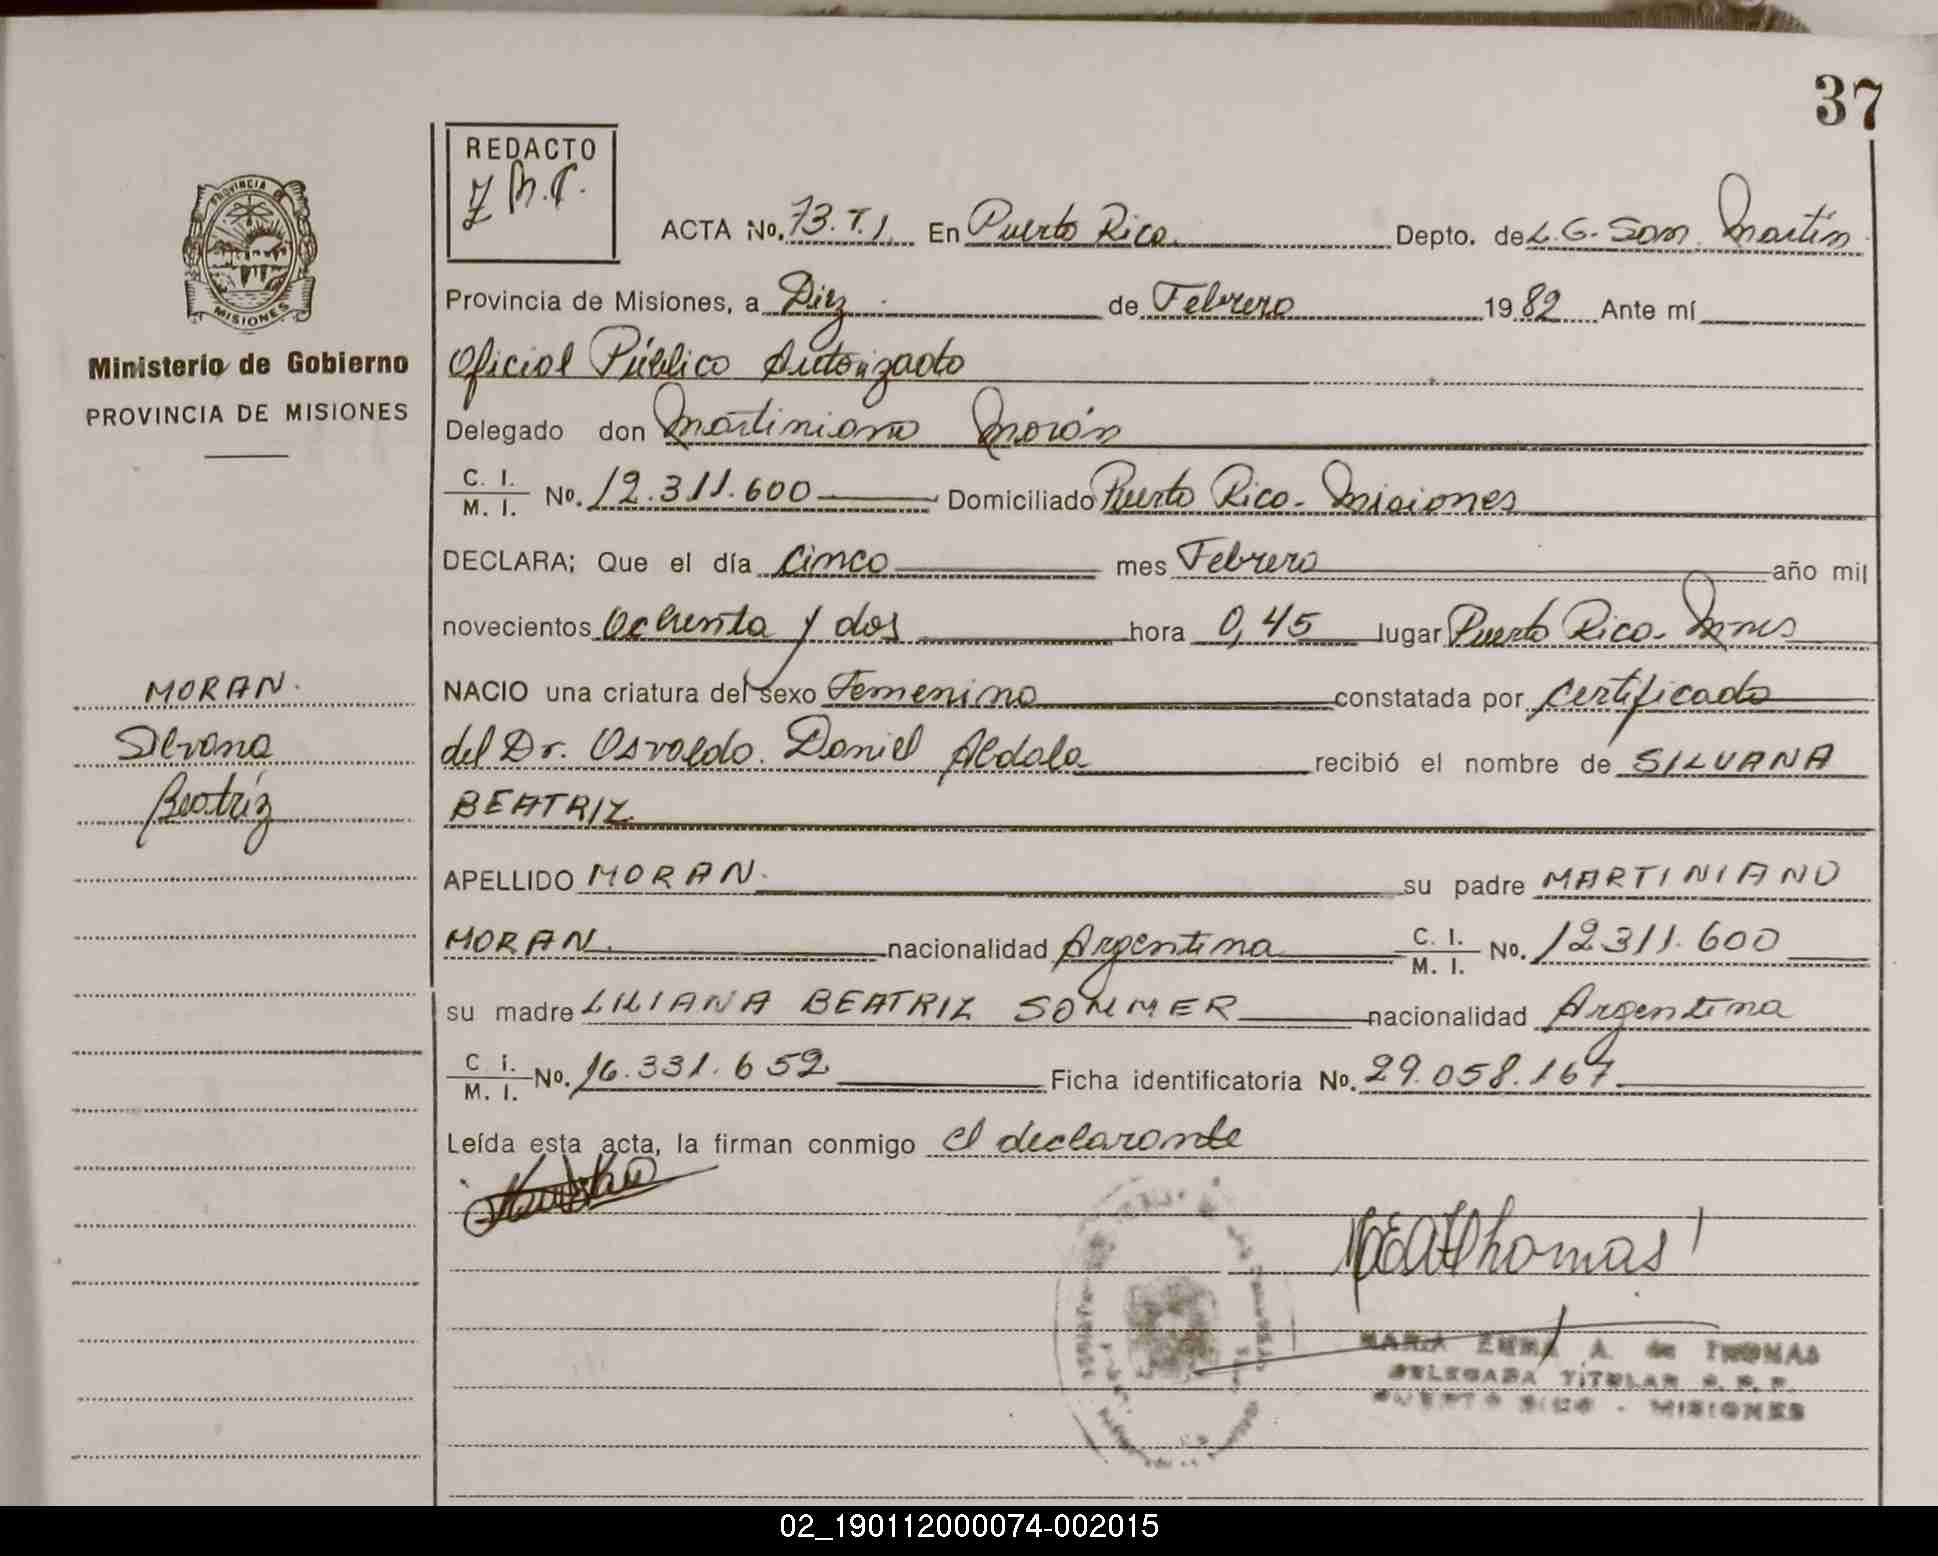 37
REDACTO
PROVINCIA DE
MISIONES
Ministerio de Gobierno
PROVINCIA DE MISIONES
ACTA No. 73. T. I. En Puerto Rico Depto. de L. G. San Martín
Provincia de Misiones, a Diez de Febrero 1982 Ante mí
Oficial Público Autorizado
Delegado don Martiniano Morán
C. I. / M. I. No. 12.311.600 Domiciliado Puerto Rico - Misiones
DECLARA; Que el día cinco mes Febrero año mil
novecientos Ochenta y dos hora 0,45 lugar Puerto Rico - Mnes
MORAN.
Silvana
Beatríz
NACIO una criatura del sexo Femenino constatada por certificado
del Dr. Osvaldo Daniel Aldala recibió el nombre de SILVANA
BEATRIZ
APELLIDO MORAN. su padre MARTINIANO
MORAN. nacionalidad Argentina C. I. / M. I. No. 12.311.600
su madre LILIANA BEATRIZ SOMMER nacionalidad Argentina
C. I. / M. I. No. 16.331.652 Ficha identificatoria No. 29.058.167
Leída esta acta, la firman conmigo el declarante
MEAThomas
MARIA EMMA A. de THOMAS
DELEGADA TITULAR R. P.
PUERTO RICO - MISIONES
02_190112000074-002015